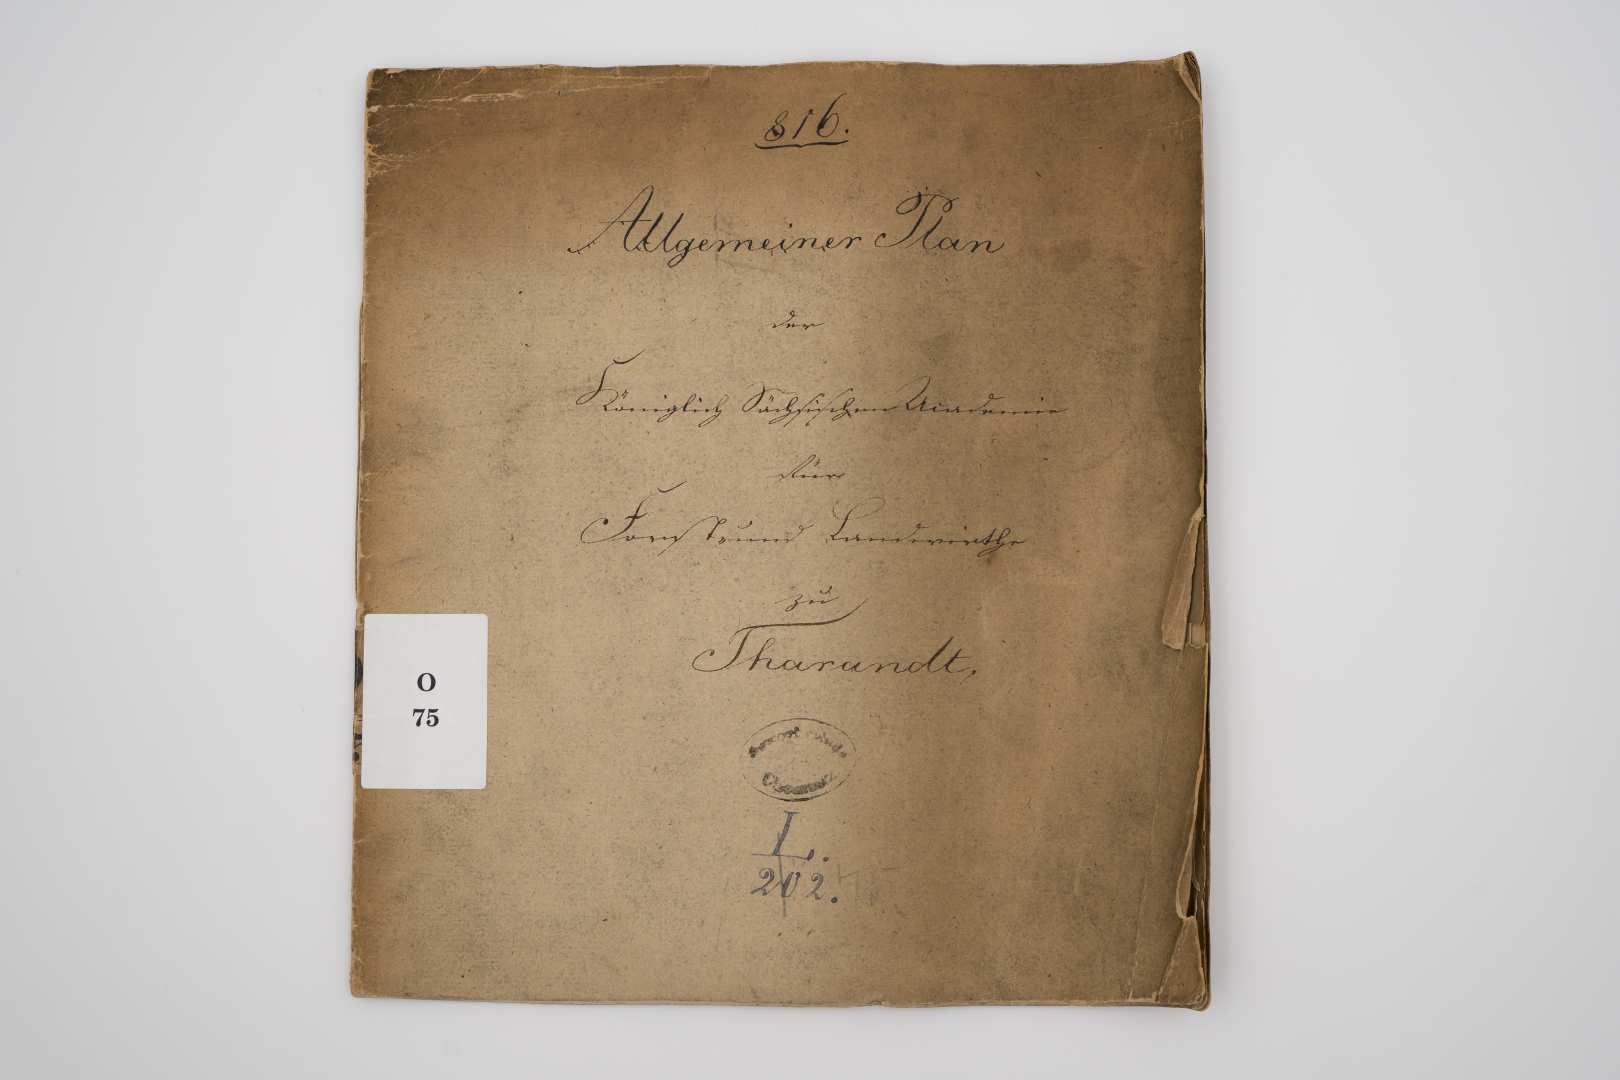 816.
Allgemeiner Plan
der
Königlich Sächsischen Academie
für
Forst- und Landwirthe
zu
Tharandt.
O
75
L.
202.